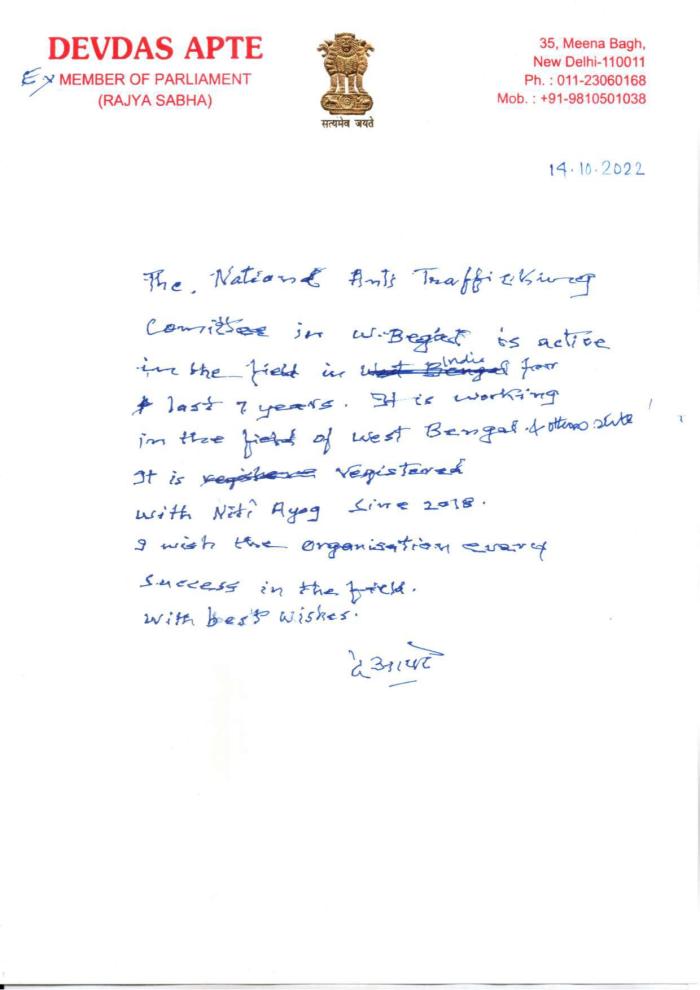 DEVDAS APTE
Ex MEMBER OF PARLIAMENT
(RAJYA SABHA)
सत्यमेव जयते
35, Meena Bagh,
New Delhi-110011
Ph. : 011-23060168
Mob. : +91-9810501038
14.10.2022
The National Anti Trafficking
Comittee in W. Begal is active
in the field in West Bengal India for
last 7 years. It is working
in the field of West Bengal. & others state
It is registered
with Niti Ayog Since 2018.
I wish the organisation every
success in the field.
with best wishes.
दे आपटे